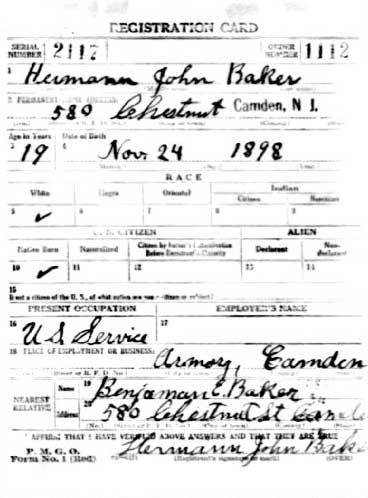 REGISTRATION CARD
SERIAL NUMBER 2117 ORDER NUMBER 1112
1 Hermann John Baker
2 PERMANENT HOME ADDRESS:
580 Chestnut Camden, N. J.
Age in Years Date of Birth
3 19 4 Nov. 24 1898
RACE
White Negro Oriental Indian
Citizen Noncitizen
5 ✓ 6 7 8 9
U. S. CITIZEN ALIEN
Native Born Naturalized Citizen by Father's Naturalization Before Registrant's Majority Declarant Non-declarant
10 ✓ 11 12 13 14
15
If not a citizen of the U. S., of what nation are you a citizen or subject?
PRESENT OCCUPATION EMPLOYER'S NAME
16 U.S. Service 17
18 PLACE OF EMPLOYMENT OR BUSINESS:
Armory, Camden
NEAREST RELATIVE
Name 19 Benjaman E. Baker
Address 20 580 Chestnut St
I AFFIRM THAT I HAVE VERIFIED ABOVE ANSWERS AND THAT THEY ARE TRUE
P. M. G. O.
Form No. 1 (Red) Hermann John Bake
(Registrant's signature or mark) (OVER)